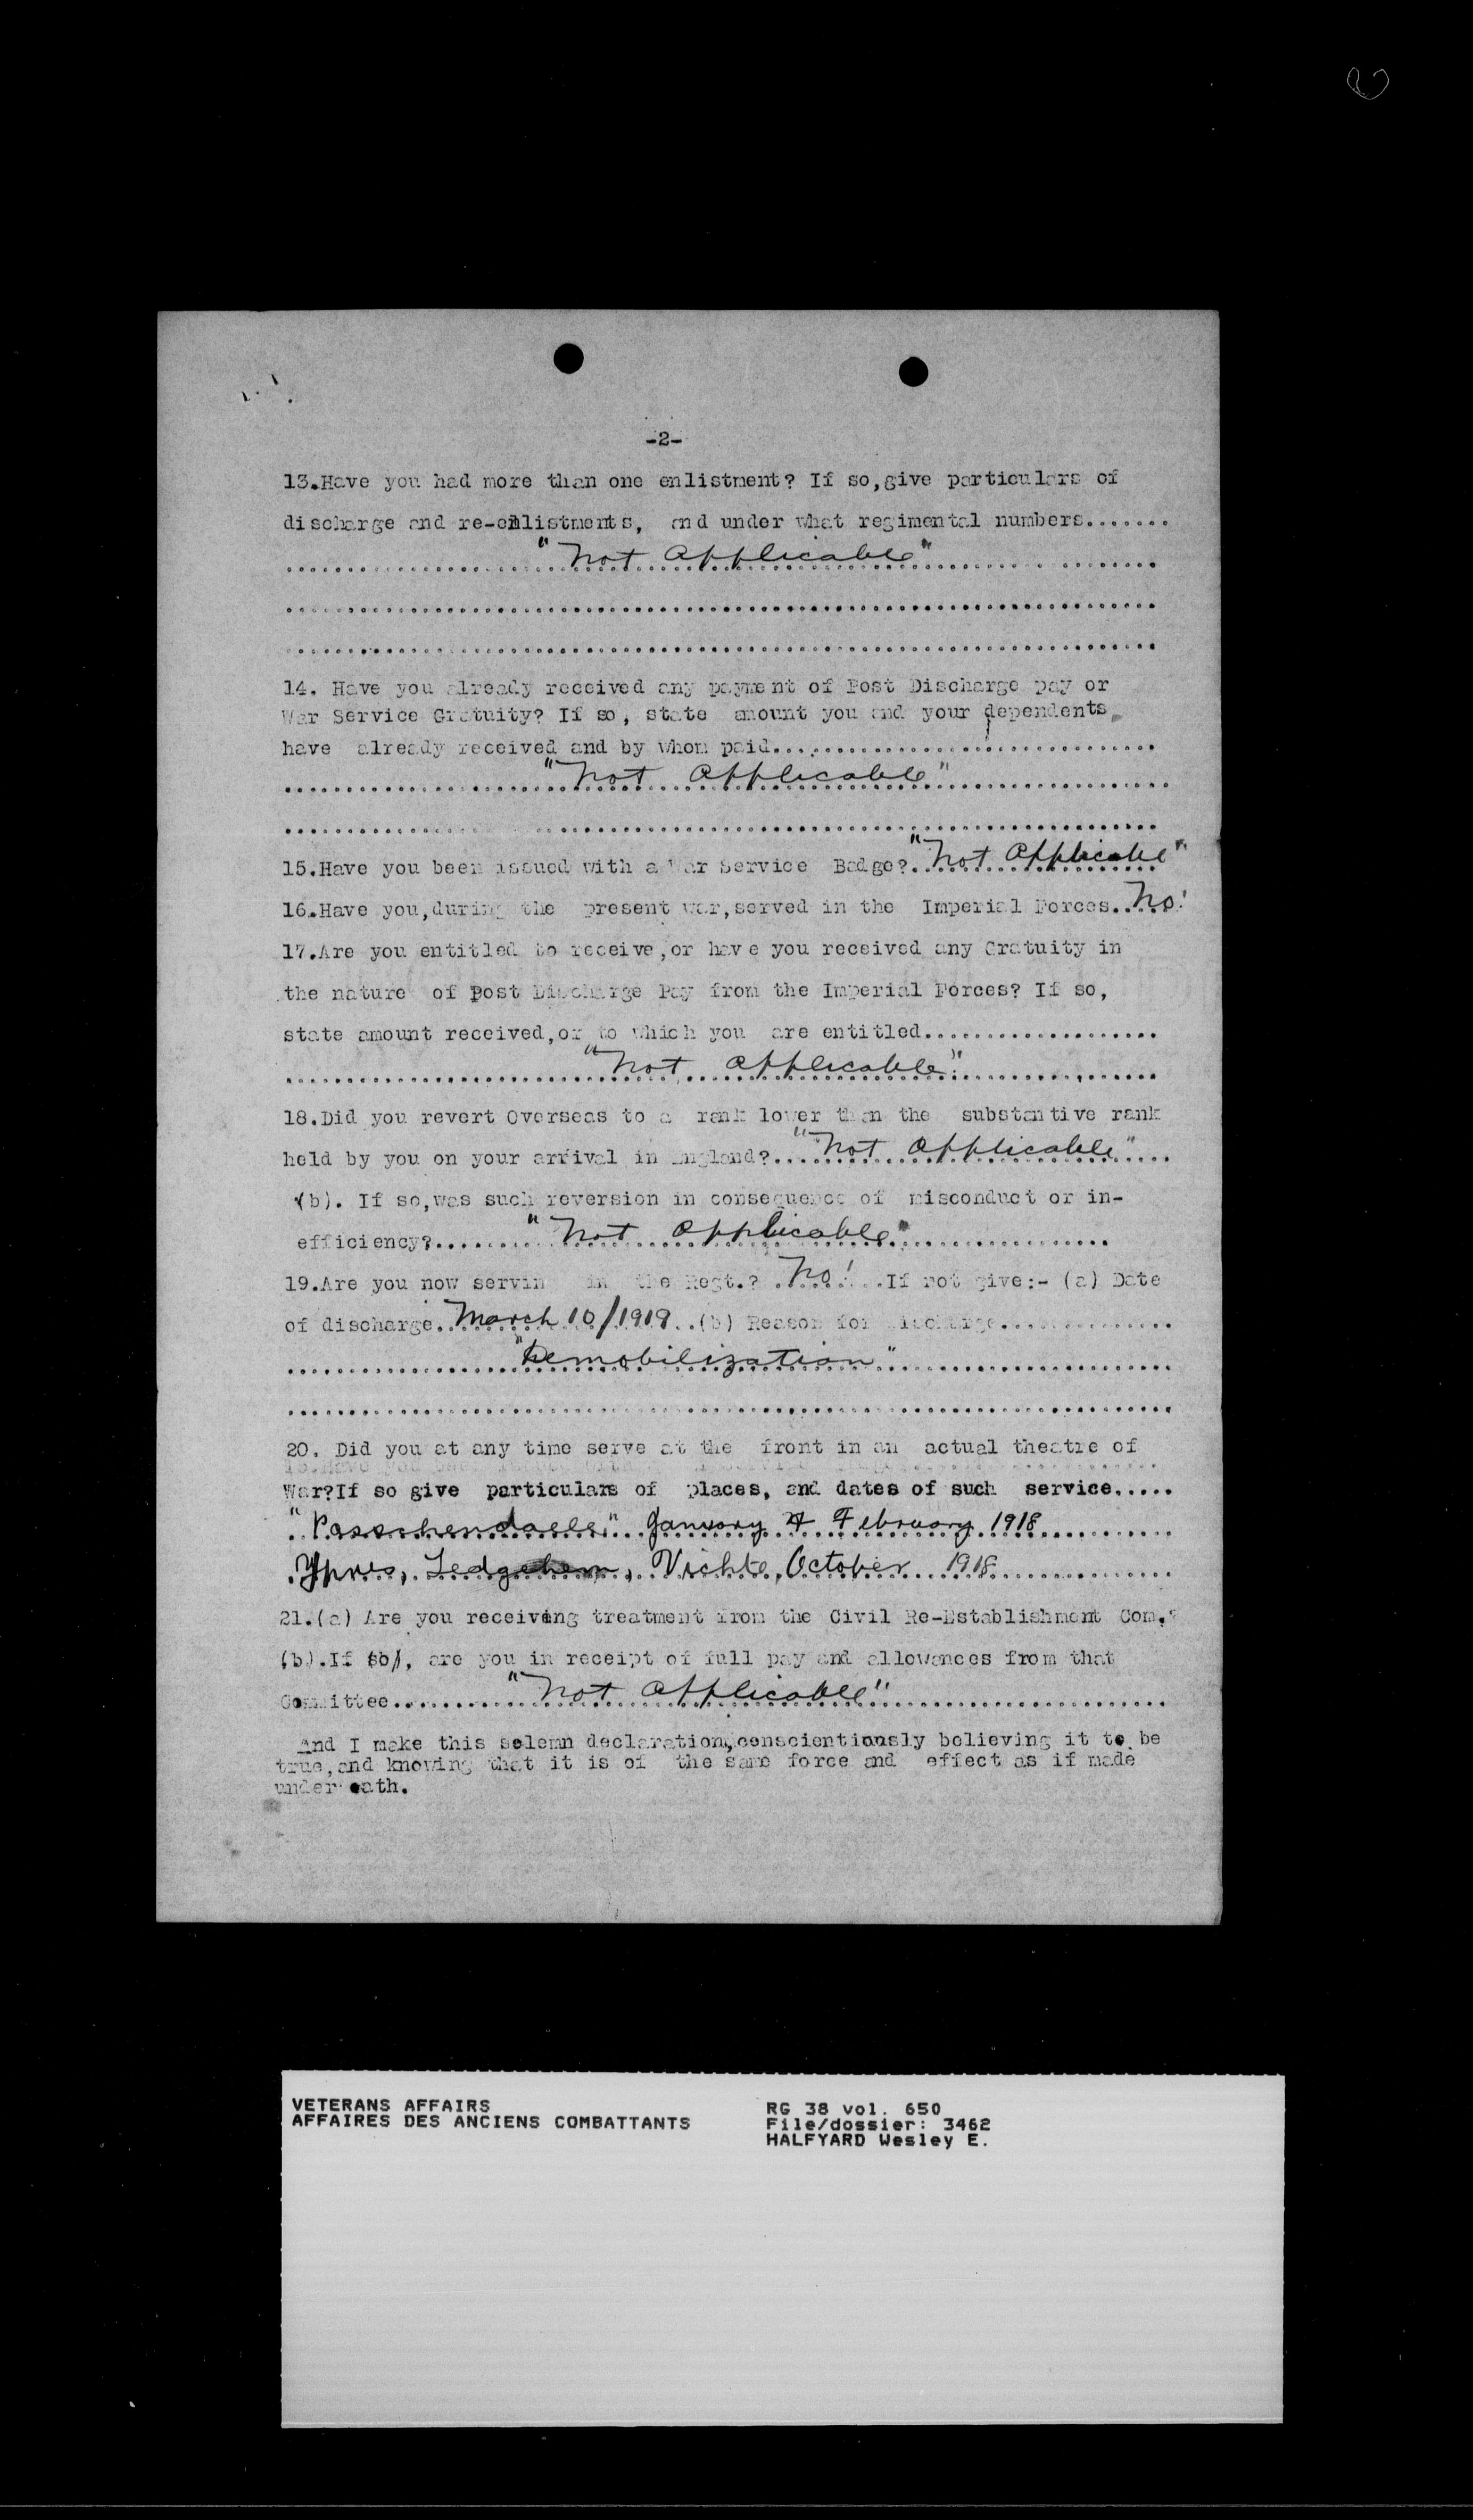 -2-
13.Have you had more than one enlistment? If so,give particulars of
discharge and re-enlistments, and under what regimental numbers.......
"Not Applicable"
14. Have you already received any payment of Post Discharge pay or
War Service Gratuity? If so, state amount you and your dependents
have already received and by whom paid...............................
"Not Applicable"
15.Have you been issued with a War Service Badge?.."Not Applicable"
16.Have you,during the present war,served in the Imperial Forces..No!
17.Are you entitled to receive,or have you received any Gratuity in
the nature of Post Discharge Pay from the Imperial Forces? If so,
state amount received,or to which you are entitled...................
"Not Applicable"
18.Did you revert Overseas to a rank lower than the substantive rank
held by you on your arrival in England?...."Not Applicable"....
(b). If so,was such reversion in consequence of misconduct or in-
efficiency?........."Not Applicable"..................
19.Are you now serving in the Regt.? .No!...If not give:- (a) Date
of discharge.March 10/1919..(b) Reason for discharge..............
"Demobilization"
20. Did you at any time serve at the front in an actual theatre of
War?If so give particulars of places, and dates of such service.....
"Passchendaele" January & February 1918
Ypres, Ledgehem, Vichte, October 1918
21.(a) Are you receiving treatment from the Civil Re-Establishment Com.?
(b).If so, are you in receipt of full pay and allowances from that
Committee.........."Not Applicable"......................
And I make this solemn declaration,conscientiously believing it to be
true,and knowing that it is of the same force and effect as if made
under oath.
VETERANS AFFAIRS
AFFAIRES DES ANCIENS COMBATTANTS
RG 38 vol. 650
File/dossier: 3462
HALFYARD Wesley E.